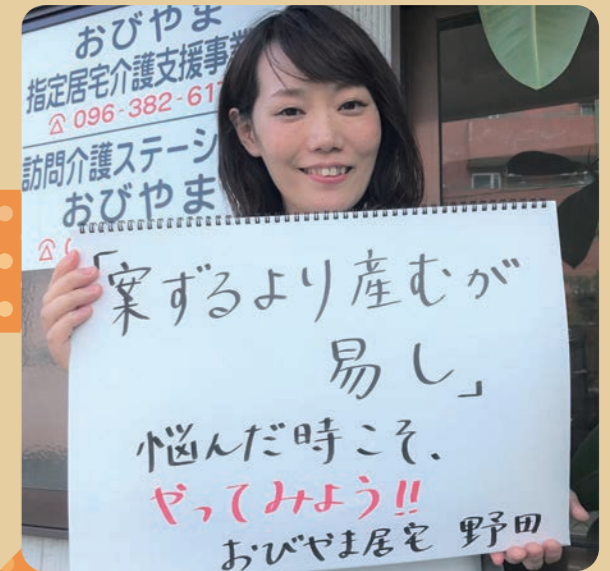 おびやま
指定居宅介護支援事業
096-382-61
訪問介護ステーシ
おびやま
「案ずるより産むが
易し」
悩んだ時こそ、
やってみよう!!
おびやま居宅 野田